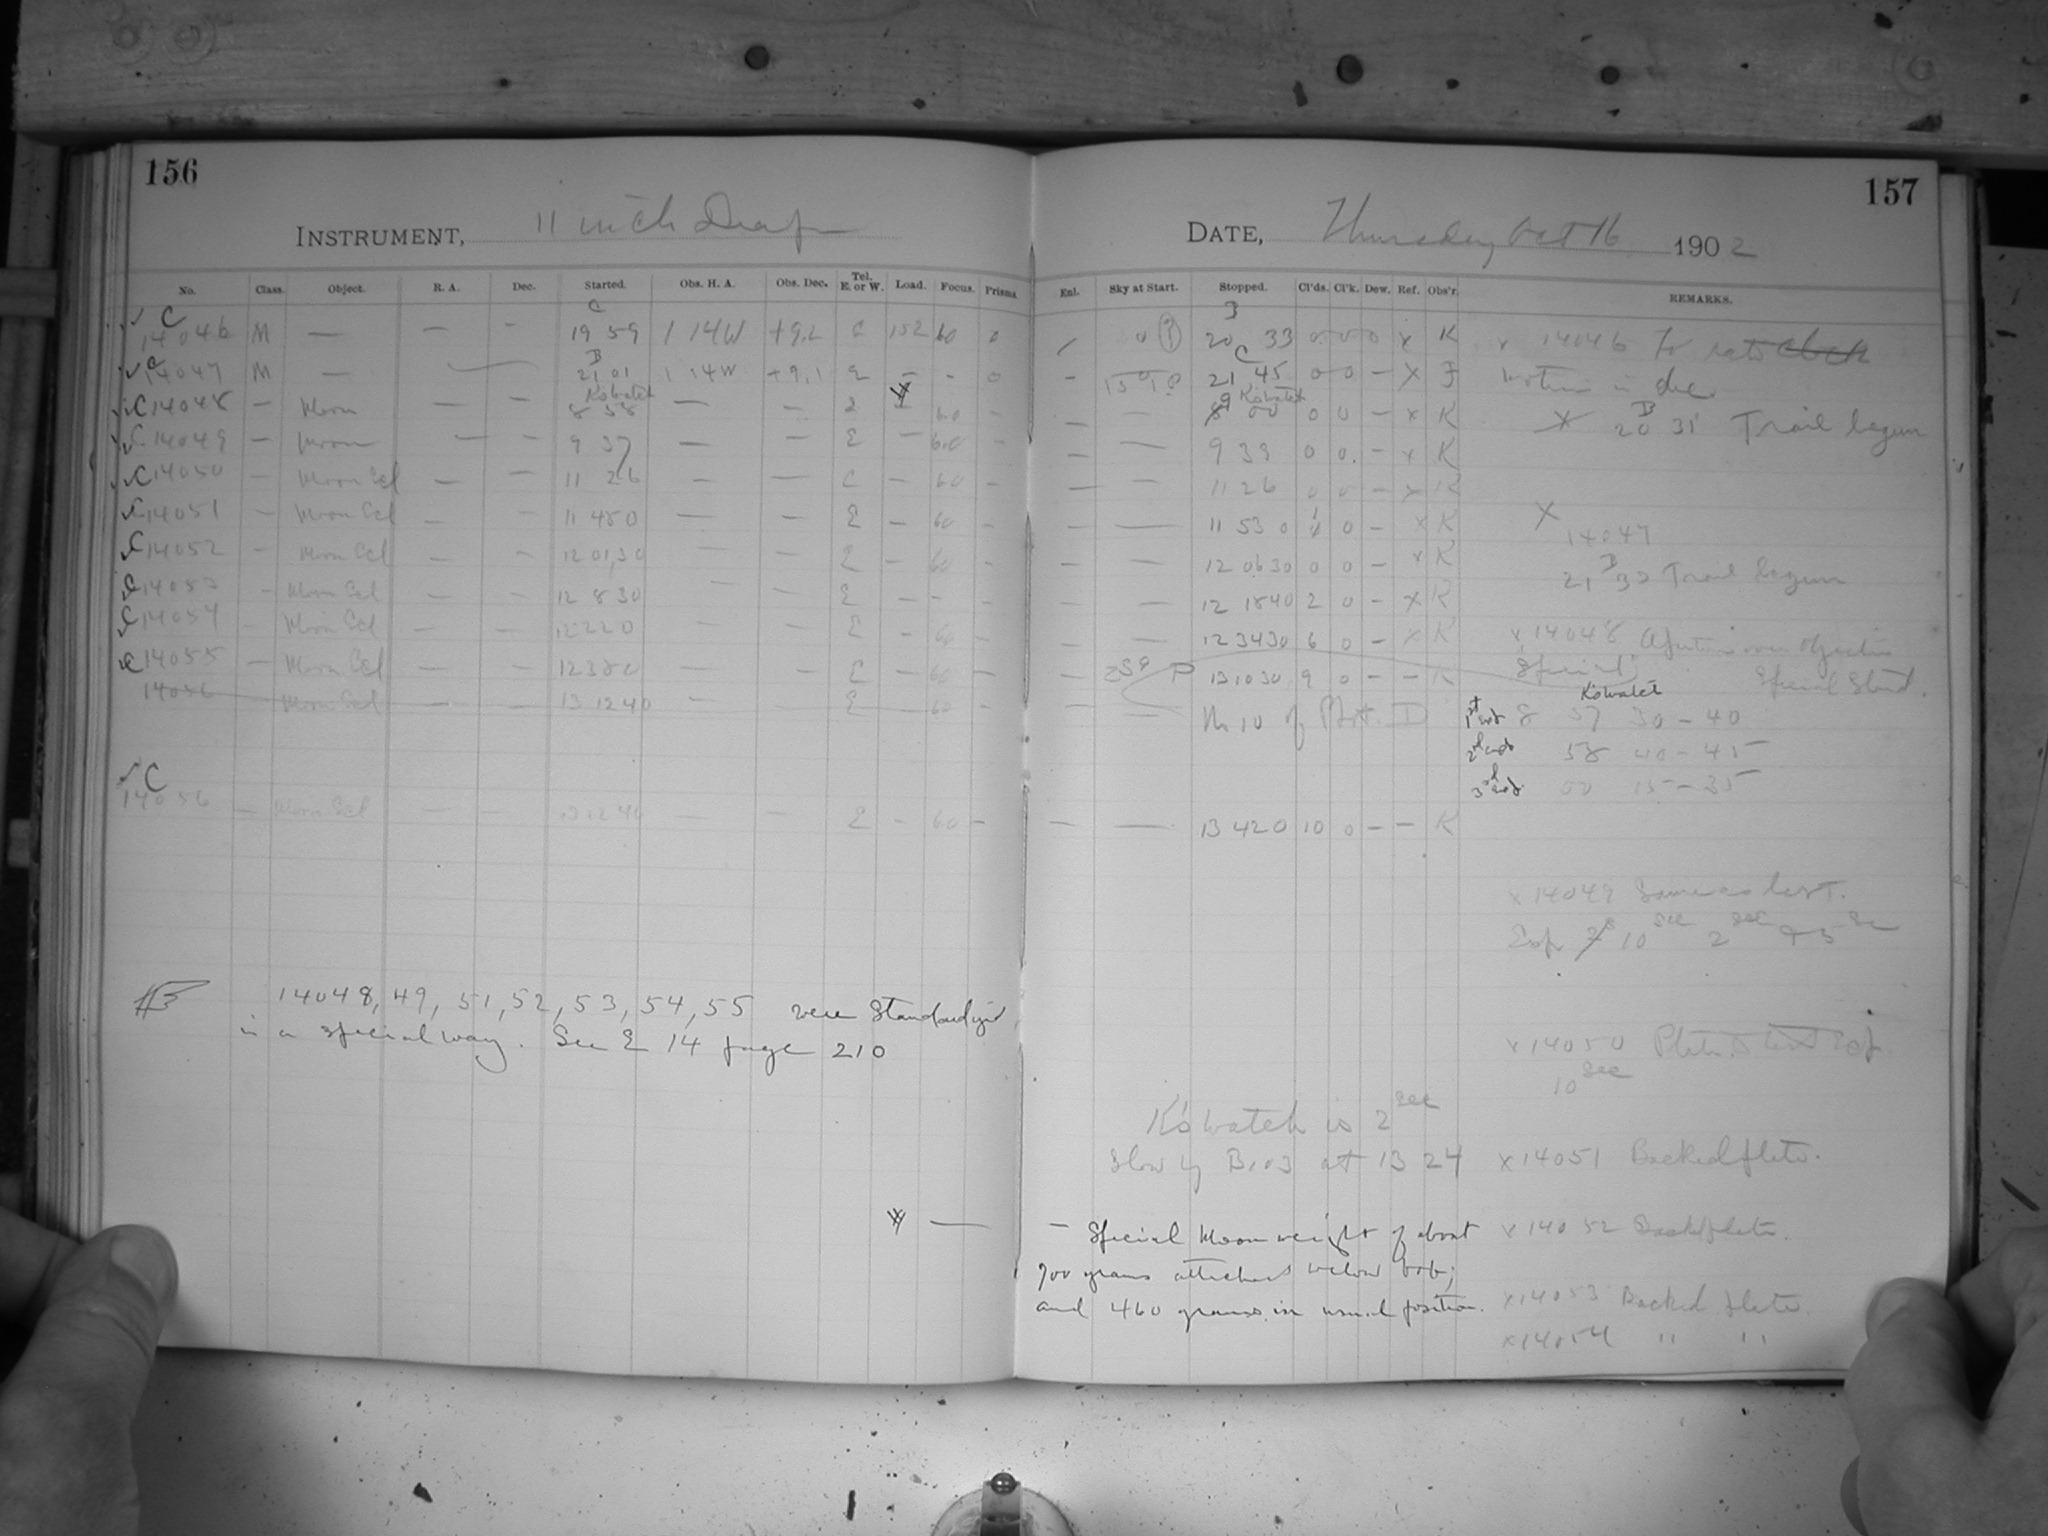 156
157
INSTRUMENT, 11 inch Draper
DATE, Thursday Oct 16 1902
No. Class. Object. R. A. Dec. Started. Obs. H. A. Obs. Dec. Tel. E. or W. Load. Focus. Prisms. Enl. Sky at Start. Stopped. Cl'ds. Cl'k. Dew. Ref. Obs'r. REMARKS.
C C B
14046 M — — - 19 59 1 14W +9.2 E 152 60 0 20 33 0 0 0 x K x 14046 for rate clock
C B C
14047 M — 21 01 1 14W +9.1 E - - 0 - 21 45 0 0 - X F Motion in dec.
K's watch K's watch
C 14048 — Moon — — 8 58 — — E 60 - — 9 00 0 0 - x K X 20 31 Trail begun
C 14049 — Moon — - 9 37 — — E — 60 - — 9 39 0 0. - x K
C 14050 — Moon Ecl — — 11 26 — — E — 60 — — 11 26 0 0 - x K
C 14051 — Moon Ecl — 11 48 0 — — E — 60 - — 11 53 0 0 - x K X 14047
C 14052 — Moon Ecl — — 12 01,30 — — E — 60 - — 12 06 30 0 0 - x K 21 32 Trail begun
C 14053 - Moon Ecl — — 12 8 30 — — E — - - — 12 18 40 2 0 - x K
C 14054 Moon Ecl — — 12 22 0 — — E — 60 - — 12 34 30 6 0 - x K x 14048
C 14055 — Moon Ecl — — 12 38 0 — — E — 60 — P 13 10 30 9 0 - - K Special Special Stand.
14056 Moon Ecl — — 13 12 40 — E 60 - — K's watch
1st exp 8 57 30 - 40
2nd exp 58 40 - 45
3rd exp. 00 15 - 35
C
14056 — Moon Ecl — — 13 12 40 — — E — 60 — — 13 42 0 10 0 - - K
x 14049 Same as last.
Exp 10 sec 2 sec 5 sec
14048, 49, 51, 52, 53, 54, 55 were Standardized
in a special way. See E 14 page 210
x 14050
10 sec
K's watch is 2 sec
slow of B. 03 at 13 24
x 14051 Backed plate.
x 14052 Backed plate.
— — Special Moon weight of about
900 grams attached below bob;
and 460 grams in usual position.
x 14053 Backed plate.
x 14054 " "